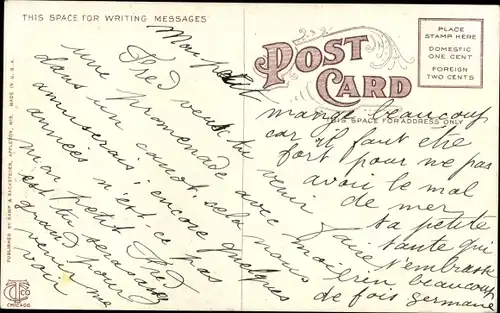 THIS SPACE FOR WRITING MESSAGES
POST
CARD
THIS SPACE FOR ADDRESS ONLY
PLACE
STAMP HERE
DOMESTIC
ONE CENT
FOREIGN
TWO CENTS
PUBLISHED BY KAMP & SACKSTEDER, APPLETON, WIS. MADE IN U.S.A.
CHICAGO
Mon petit
Fred veux tu venir
une promenade avec moi
dans un canot, cela nous
amuserais; encore quelques
années n'est-ce pas
mon petit Fred
est tu seras assez
grand pour
venir me
voir
mange beaucoup
car il faut être
fort pour ne pas
avoir le mal
de mer
ta petite
tante qui
t'embrasse
beaucoup
de fois Germaine